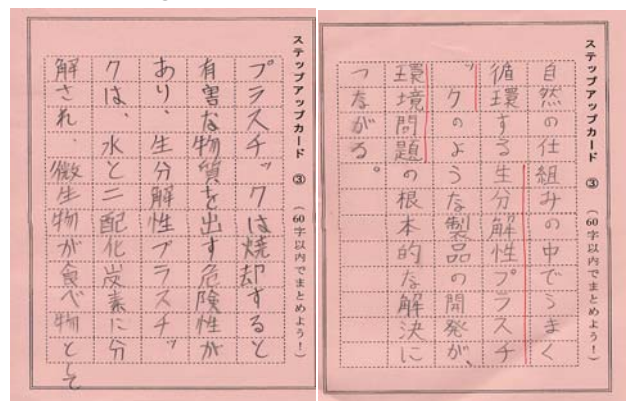 ステップアップカード ③ (60字以内でまとめよう！)
プラスチックは焼却すると
有害な物質を出す危険性が
あり、生分解性プラスチッ
クは、水と二配化炭素に分
解され、微生物が食べ物として
ステップアップカード ③ (60字以内でまとめよう！)
自然の仕組みの中でうまく
循環する生分解性プラスチ
ックのような製品の開発が、
環境問題の根本的な解決に
つながる。